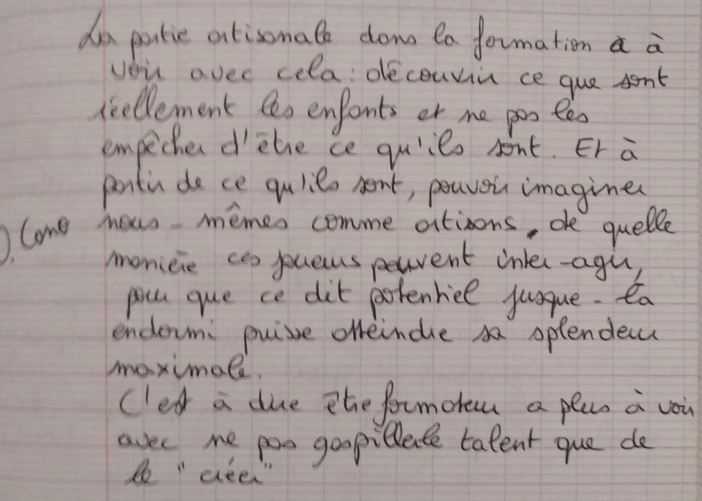 La partie artisanale dans la formation a à
voir avec cela : découvrir ce que sont
réellement les enfants et ne pas les
empêcher d'être ce qu'ils sont. Et à
partir de ce qu'ils sont, pouvoir imaginer
nous-mêmes comme artisans, de quelle
manière ces joueurs peuvent inter-agir,
pour que ce dit potentiel jusque-là
endormi puisse atteindre sa splendeur
maximale.
C'est à dire être formateur a plus à voir
avec ne pas gaspiller le talent que de
le "créer"